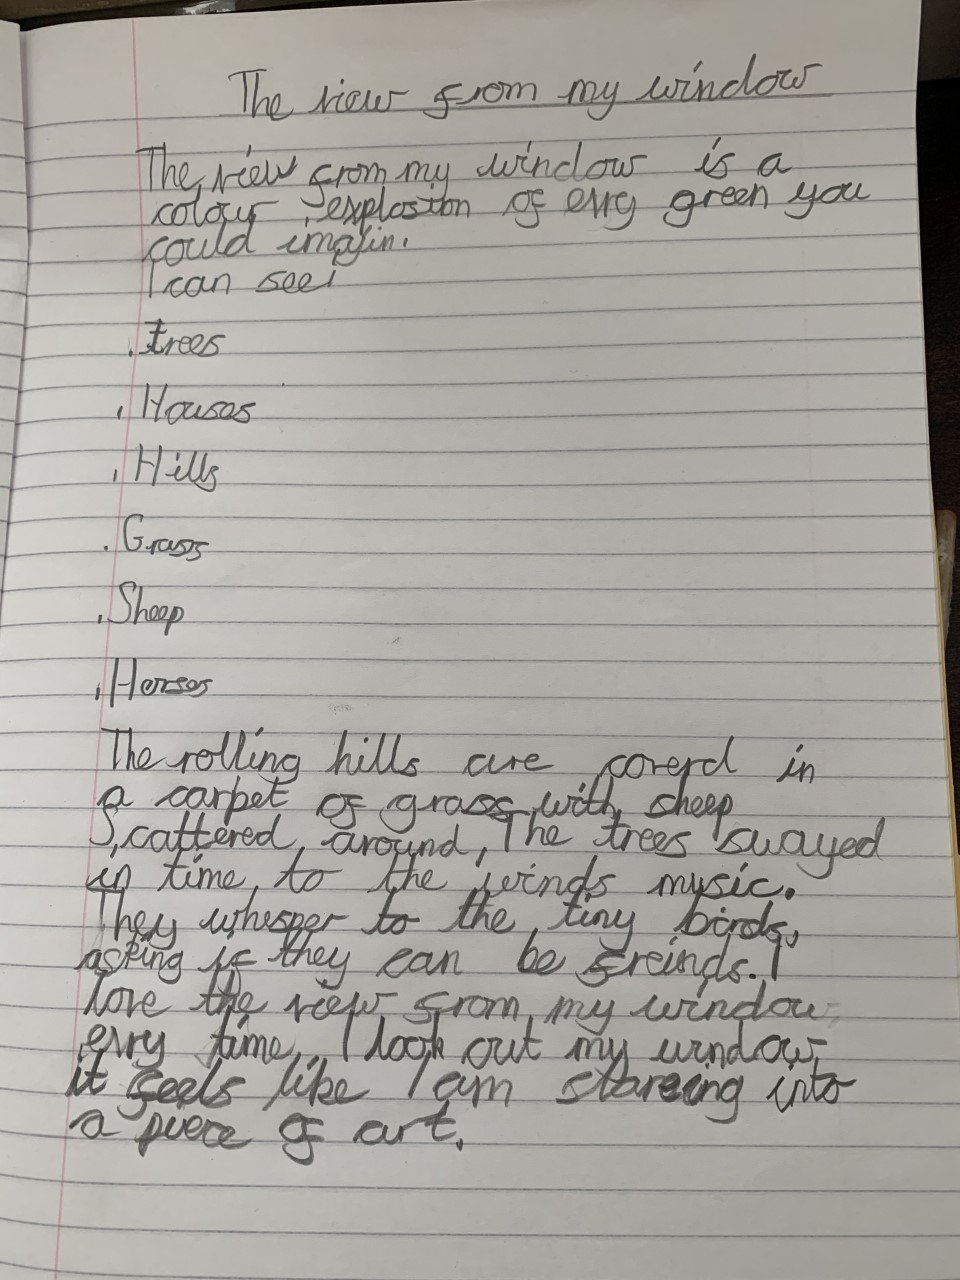 The view from my window
The view from my window is a
colour explosion of evry green you
could imajin.
I can see
. trees
. Houses
. Hills
. Grass
. Sheep
. Horses
The rolling hills are coverd in
a carpet of grass with sheep
Scattered around, The trees swayed
in time to the winds music.
They whesper to the tiny birds,
asking if they can be freinds. I
love the view from my window
evry time I look out my window
it feels like I am stareing into
a piece of art.